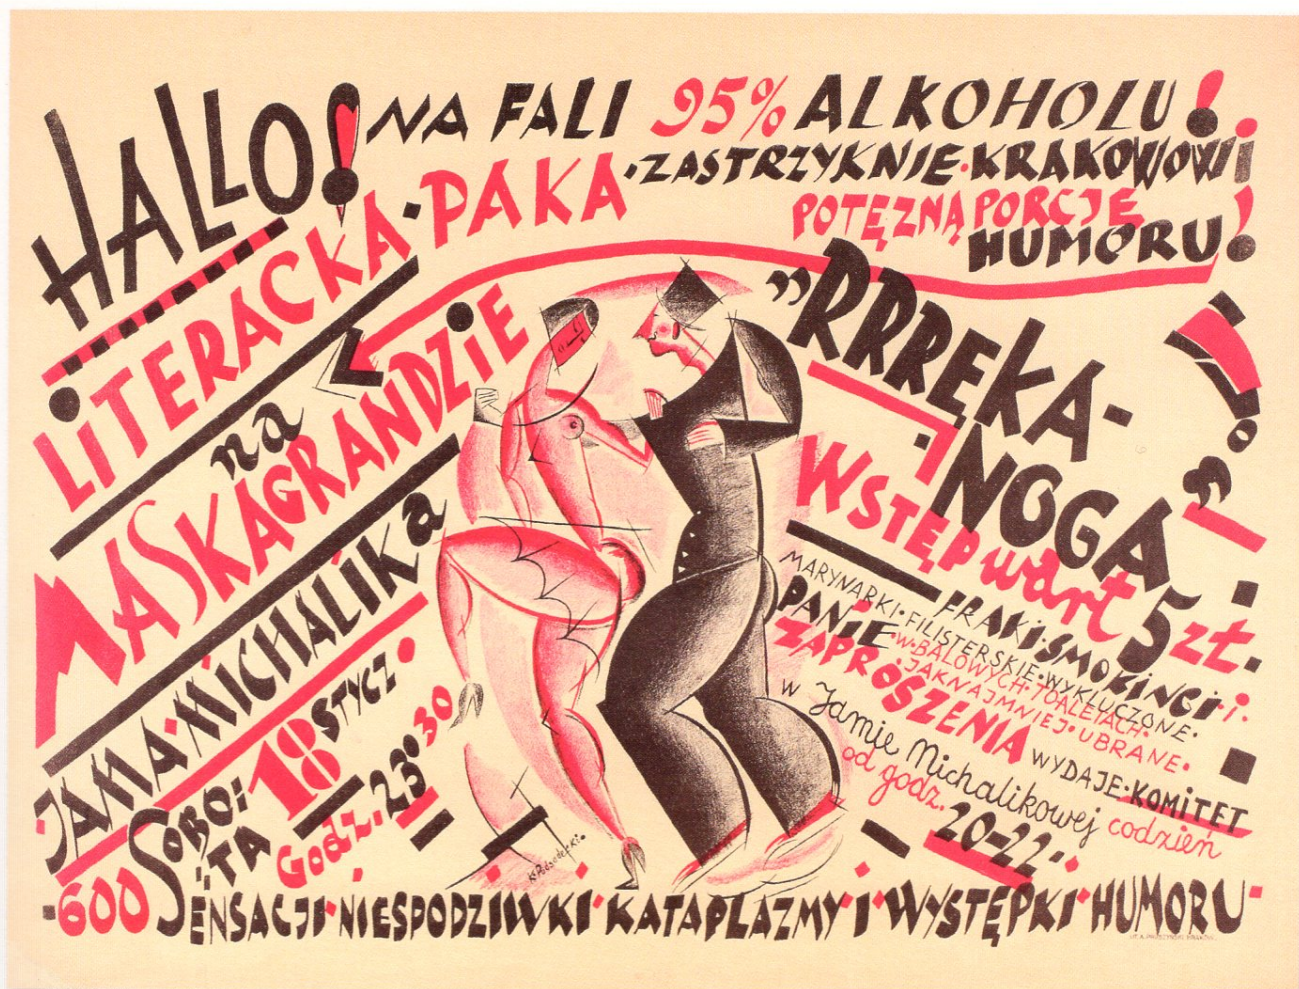 HALLO!
NA FALI 95% ALKOHOLU!
LiTERACKA·PAKA
·ZASTRZYKNIE·KRAKOWOWi
POTĘZNĄ PORCJĘ
HUMORU!
na
MASKAGRANDZiE
„RRRĘKA-
NOGA"
JAMA·MiCHALIKa
WSTĘP wart 5 zł.
FRAKi·SMOKiNGi·i·
MARYNARKI·FILISTERSKIE·WYKLUCZONE·
PANiE·W·BALOWYCH·TOALETACH·
JAKNAJMNIEJ·UBRANE·
ZAPRÓSZENIA WYDAJE·KOMiTET
w Jamie Michalikowej codzień
od godz. 20-22·
SOBO:TA 18 STYCZ
Godz. 23° 30
·600 SENSACJI·NIESPODZIWKI·KATAPLAZMY·i·WYSTĘPKI·HUMORU·